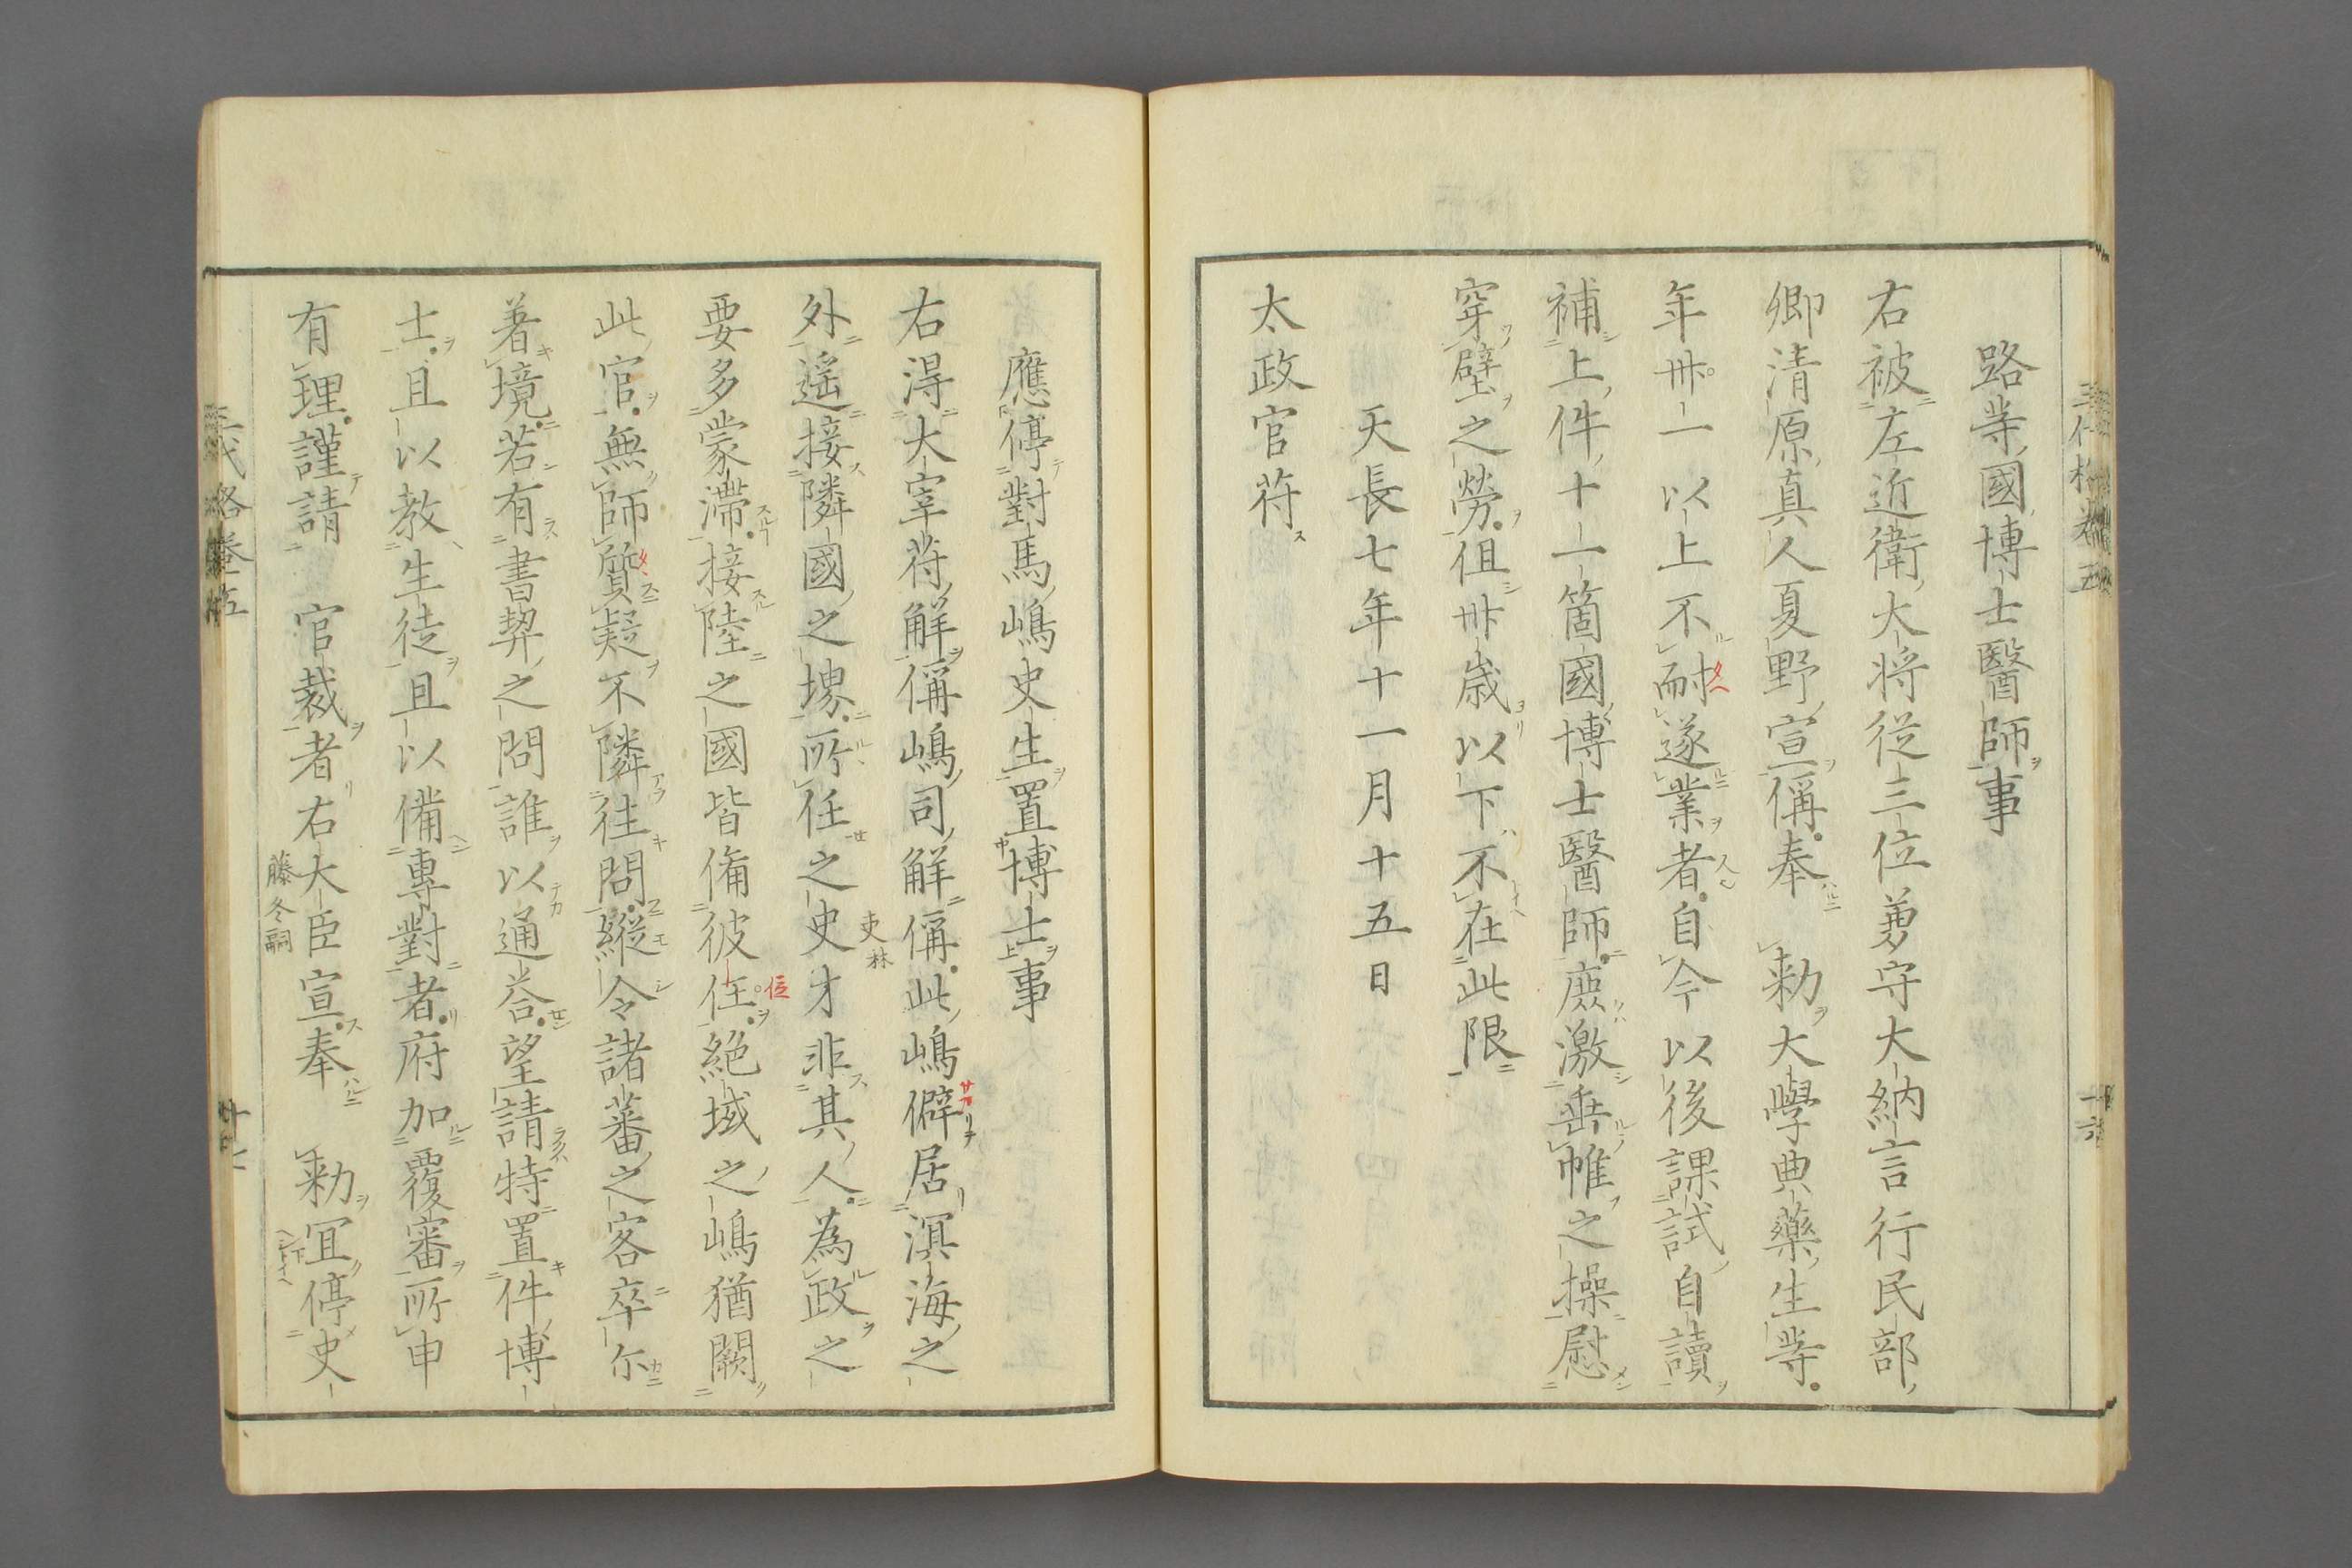 路等國博士醫師事
右被左近衛大将従三位兼守大納言行民部
卿清原真人夏野宣偁奉　勑大學典藥生等
年卌一以上不耐遂業者自今以後課試自讀
補上件十一箇國博士醫師庶激垂帷之操慰
穿壁之勞但卌歳以下不在此限
天長七年十一月十五日
太政官符
應停對馬嶋史生置博士事
右得大宰符解偁嶋司解偁此嶋僻居溟海之
外遥接隣國之堺所任之史才非其人為政之
吏林
要多蒙滯接陸之國皆俻彼任絶域之嶋猶闕
此官無師質疑不隣往問縦令諸蕃之客卒尓
著境若有書契之問誰以通荅望請特置件博
士且以教生徒且以備專對者府加覆審所申
有理謹請　官裁者右大臣宣奉　勑冝停史
藤冬嗣
三代格巻五